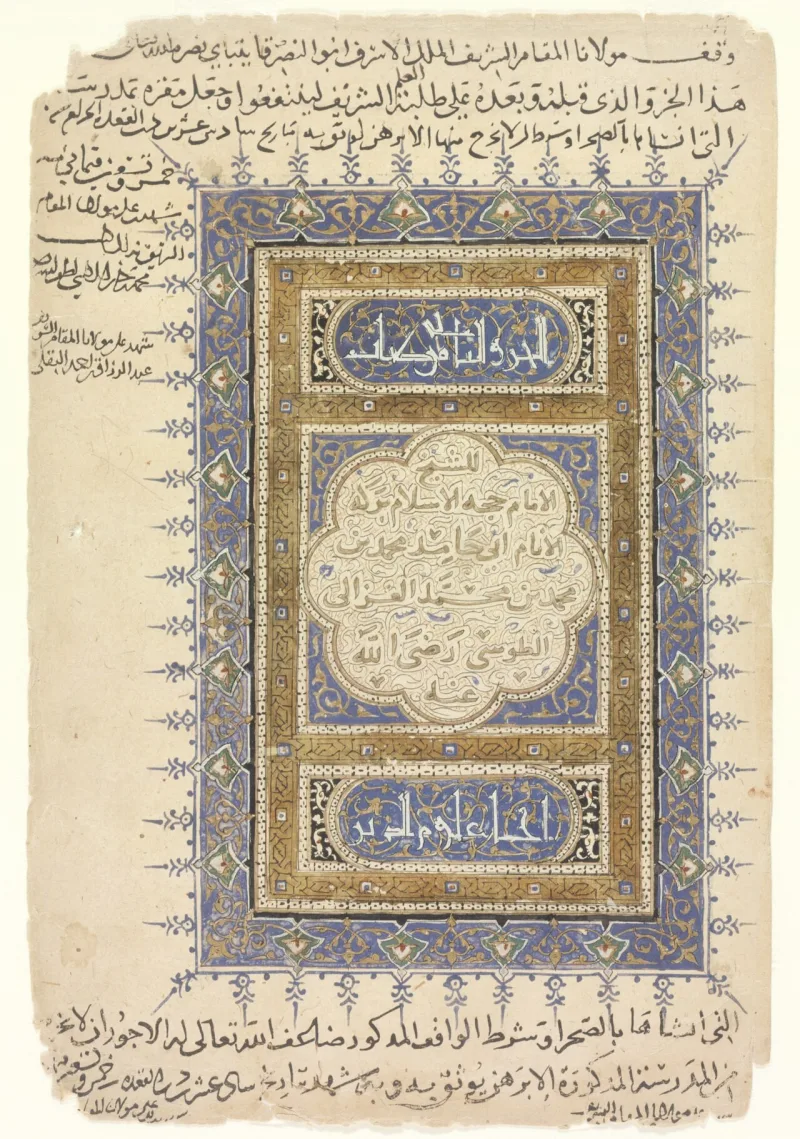 وقف مولانا المقام الشريف الملك الاشرف ابو النصر قايتباي نصره الله تعالى
هذا الجزو الذي قبله وبعده على طلبة العلم الشريف لينتفعوا وجعل مقره بمدرسته
التي انشاها بالصحرا وشرط ان لا يخرج منها الا برهن يوثق به بتاريخ سادس القعده الحرام سنة
خمس وتسعين وثماني مايه
شهد على مولانا المقام
الشريف بذلك
محمد
شهد على مولانا المقام الشريف
عبد الرزاق احمد البقلي
الجزو من كتاب
للشيخ
الامام حجه الاسلام بركه
الانام ابي حامد محمد بن
محمد بن محمد الغزالي
الطوسي رضي الله
عنه
احيا علوم الدين
التي انشاها بالصحرا وشرط الواقف المذكور ضاعف الله تعالى له الاجور ان لا يخرج
من المدرسة المذكورة الا برهن يوثق به شهد بتاريخ سادس القعده خمس وتسعين